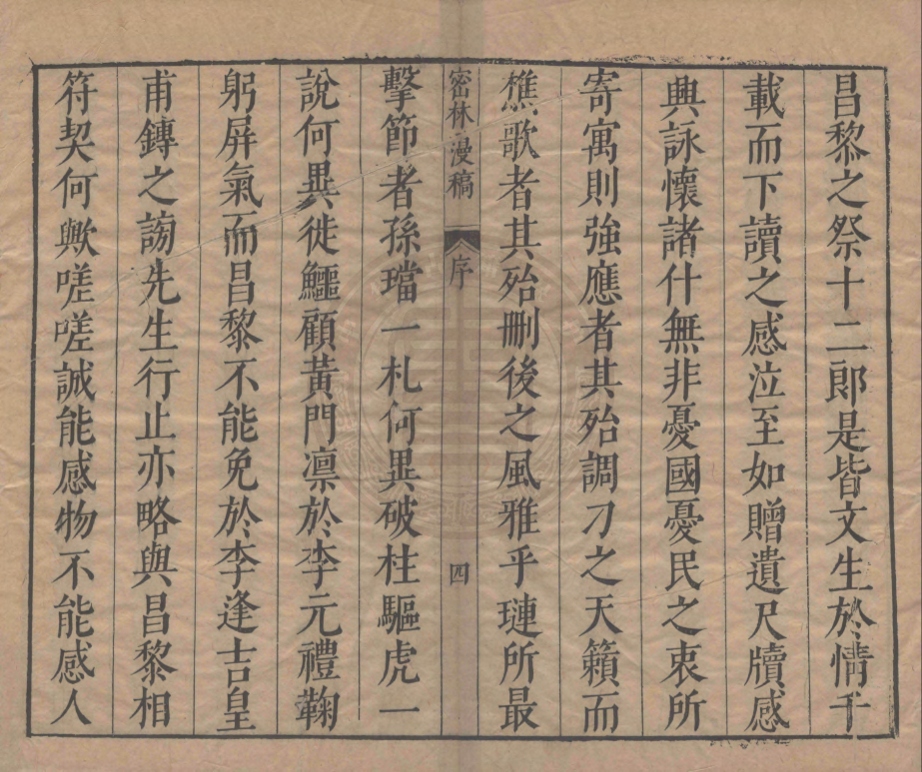 昌黎之祭十二郞是皆文生於情千
載而下讀之感泣至如贈遺尺牘感
興詠懷諸什無非憂國憂民之衷所
寄寓則強應者其殆調刁之天籟而
樵歌者其殆刪後之風雅乎璉所最
密林漫稿 序 四
擊節者孫璫一札何異破柱驅虎一
說何異徙鱷顧黃門凛於李元禮鞠
躬屏氣而昌黎不能免於李逢吉皇
甫鎛之謗先生行止亦略與昌黎相
符契何歟嗟嗟誠能感物不能感人